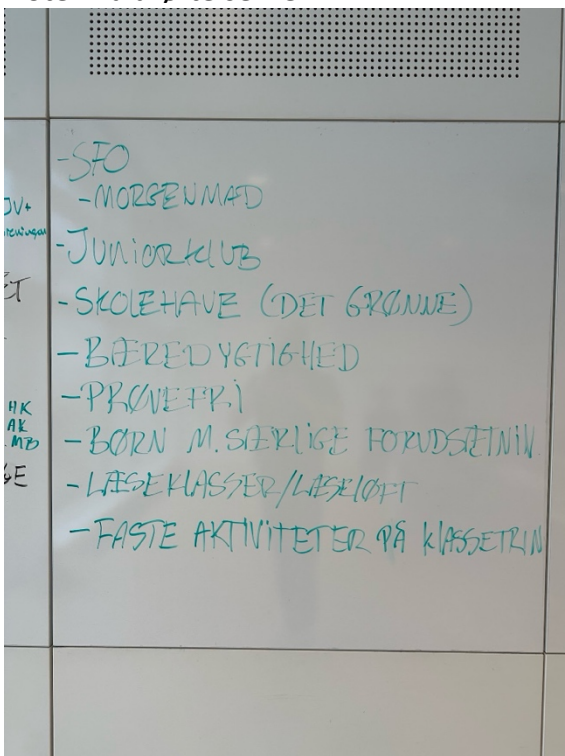 -SFO
-MORGENMAD
-JUNIORKLUB
-SKOLEHAVE (DET GRØNNE)
-BÆREDYGTIGHED
-PRØVEFRI
-BØRN M. SÆRLIGE FORUDSÆTNIN
-LÆSEKLASSER/LÆSELØFT
-FASTE AKTIVITETER PÅ KLASSETRIN
JV+
ET
HK
AK
MB
GE